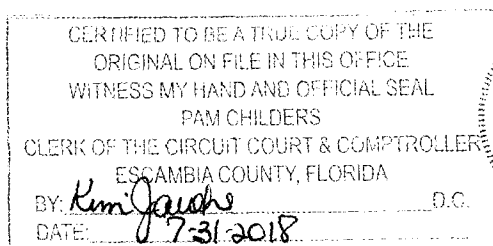 CERTIFIED TO BE A TRUE COPY OF THE
ORIGINAL ON FILE IN THIS OFFICE
WITNESS MY HAND AND OFFICIAL SEAL
PAM CHILDERS
CLERK OF THE CIRCUIT COURT & COMPTROLLER
ESCAMBIA COUNTY, FLORIDA
BY: Kim D.C.
DATE: 7-31-2018